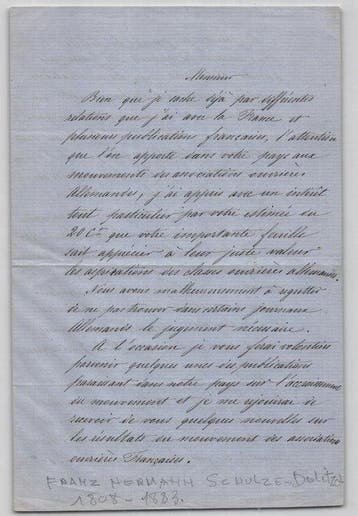 Monsieur
Bien que je sache déjà par différentes
relations que j'ai avec la France et
plusieurs publications françaises, l'attention
que l'on apporte dans votre pays aux
mouvements des associations ouvrières
Allemandes, j'ai appris avec un intérêt
tout particulier par votre estimée du
20 Ct. que votre importante feuille
sait apprécier à leur juste valeur
les aspirations des classes ouvrières allemandes.
Nous avons malheureusement à regretter
de ne pas trouver dans certains journaux
Allemands le jugement nécessaire.
A l'occasion je vous ferai volontiers
parvenir quelques unes des publications
paraissant dans notre pays sur l'
du mouvement et je me réjouirai de
recevoir de vous quelques nouvelles sur
les résultats du mouvement des associations
ouvrières Françaises.
FRANZ HERMANN SCHULZE-Delitzsch
1808-1883.